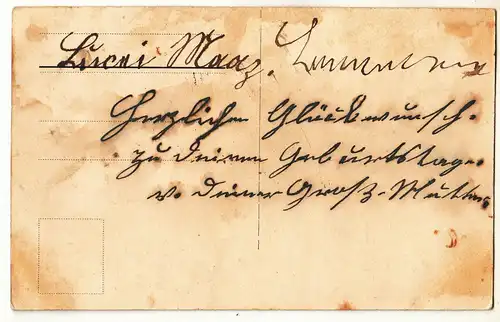 Lucei Maaz.
Herzlichen Glückwunsch.
zu deinen Geburtstage.
v. deiner Groß-Mutter